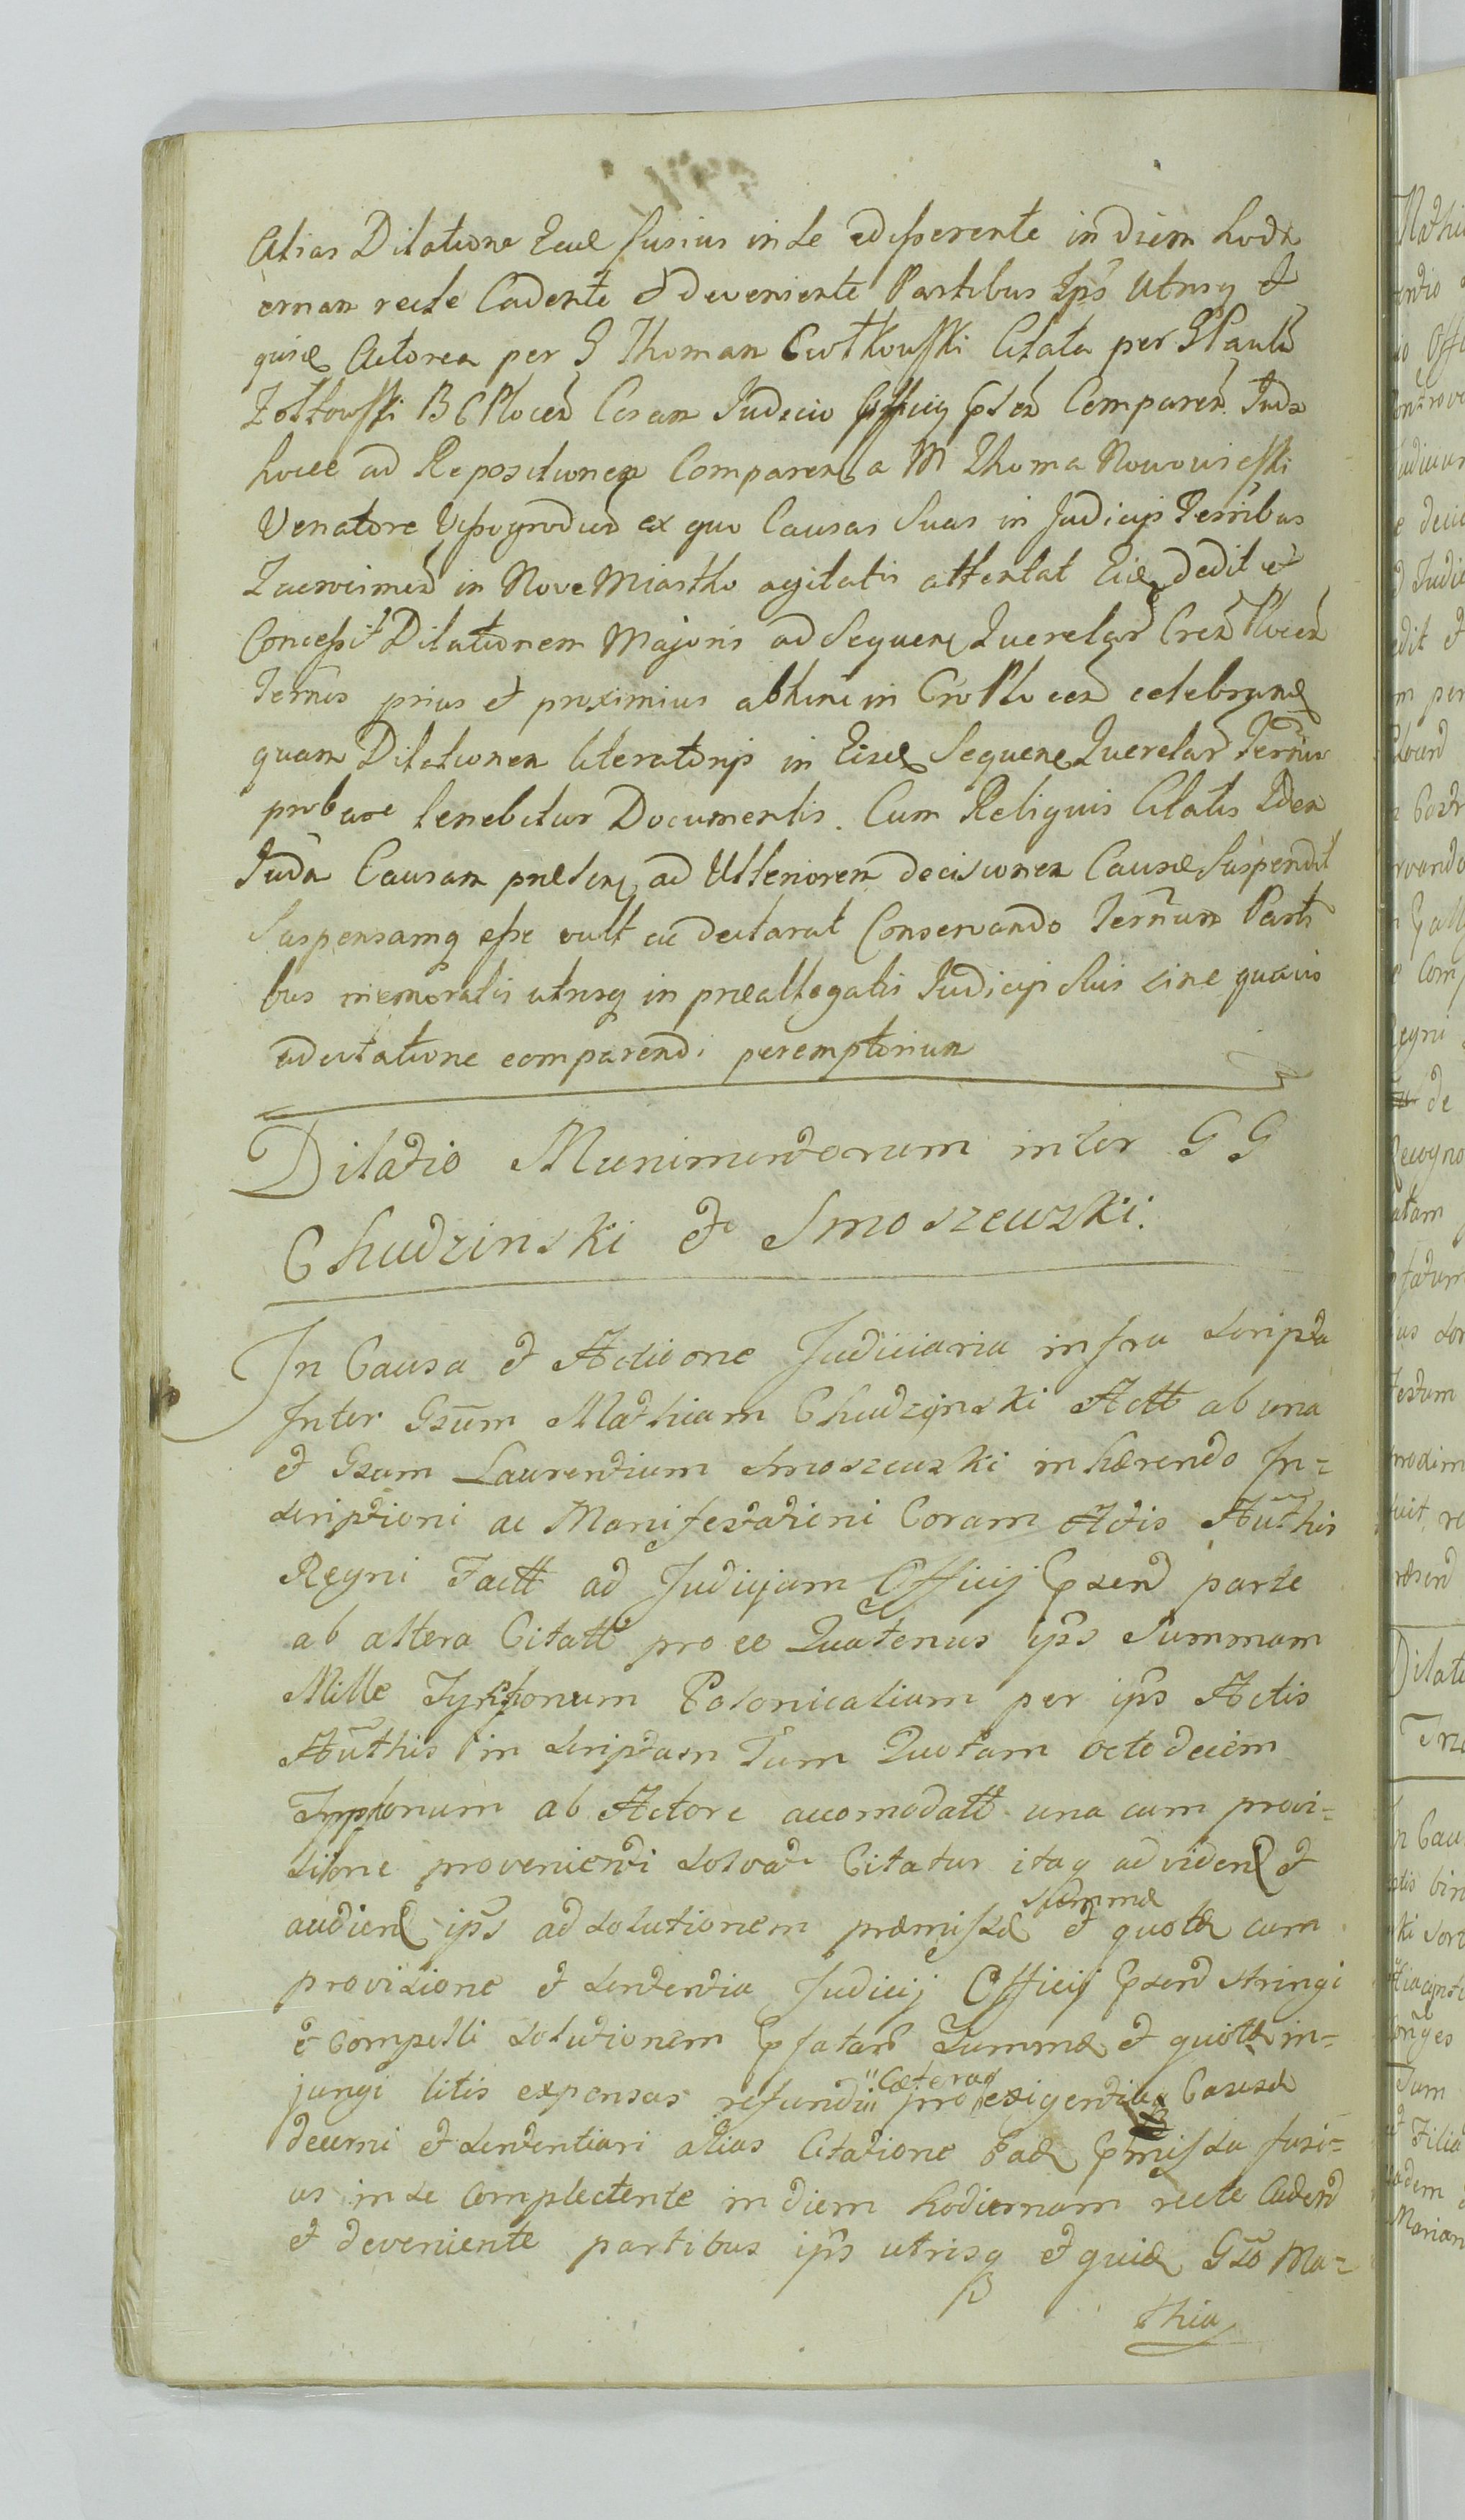 Alias Dilatione Ead fusius in se edisserente in diem hodi
ernam recte Cadente et deveniente Partibus Ips Utrisq et
quid Actorea per G Thoman Cwtkowski Citata per G Paulu
Zolkowski B C Plocen Coram Judicio Officij Psen Comparen. Juda
hocce ad Repositionem Comparens a M Thoma Nowowieski
Venatore Vyssogrodien ex quo Causas Suas in Judicijs Terribus
Zacrocimen in Nove Miastho agitatis attentat Eid dedit et
Concessit Dilationem Majoris ad Sequen Querelar Cren Plocen
Termos prius et proximius abhinc in Cro Plocen celebrand
quam Dilationem literatorijs in Eisd Sequend Querelar Termis
probare tenebitur Documentis. Cum Reliquis Citatis Idem
Juda Causam præsen ad Ulteriorem decisionem Causæ Suspendit
Suspensamq esse vult ac declarat Conservando Terminum Parti
bus memoratis utrisq in præallegatis Judicijs Suis sine quavis
adcitatione comparendi peremptorium
Dilatio Munimentorum inter G G
Chudzinski et Smoszewski.
In Causa et Actione Judiciaria infra scripta
Inter Gsum Mathiam Chudzynski Actt ab una
et Gsum Laurentium Smoszewski inhærendo In=
scriptioni ac Manifestationi Coram Actis Authis
Regni Factt ad Judicium Officij Psend parte
ab altera Citatt pro eo Quatenus ips Summam
Mille Tynphonum Polonicalium per ips Actis
Authis in scriptam Tum Quotam octodecim
Tynphonum ab Actore accomodatt una cum provi=
sione provenienti solvat Citatur itaq ad vidend et
audiend ips ad solutionem præmissæ Summæ et quotæ cum
provisione et sententia Judicij Officij Psend stringi
et compelli solutionem Pfatar Summæ et quotæ in=
jungi litis expensas refundi Cæteraq pro exigentia Causæ
decerni et sententiari alias Citatione Ead Pmissa fusi=
us in se Complectente in diem hodiernam recte Cadend
et deveniente partibus ips utrisq et quid Gso Ma=
thia